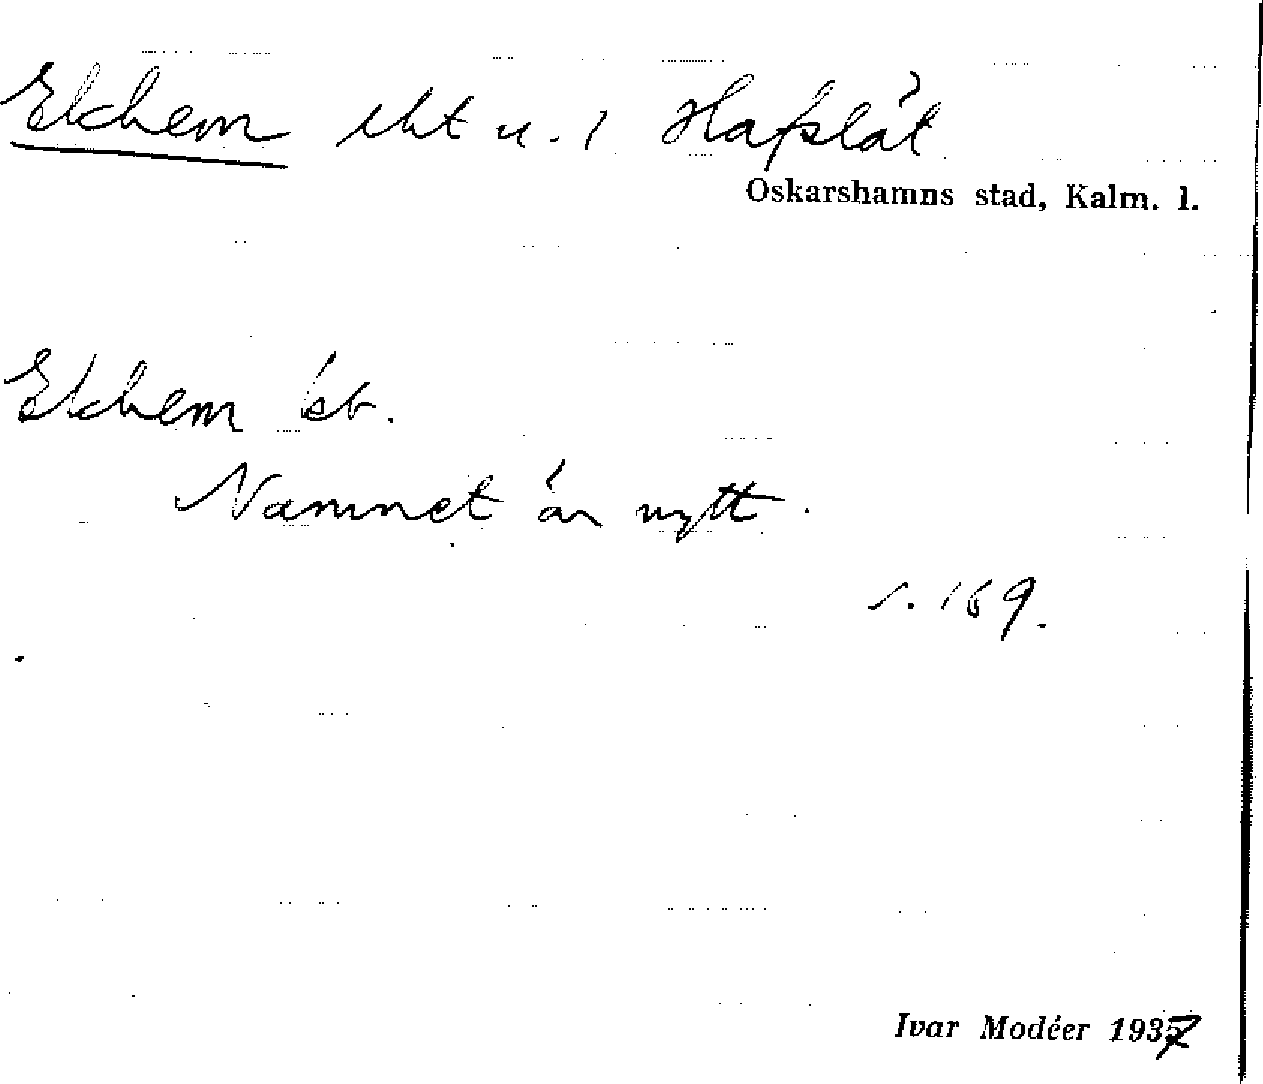 Ekhem lht u. 1 Hafslät
Oskarshamns stad, Kalm. l.
Ekhem kb.
Namnet är nytt.
s. 169.
Ivar Modéer 1937